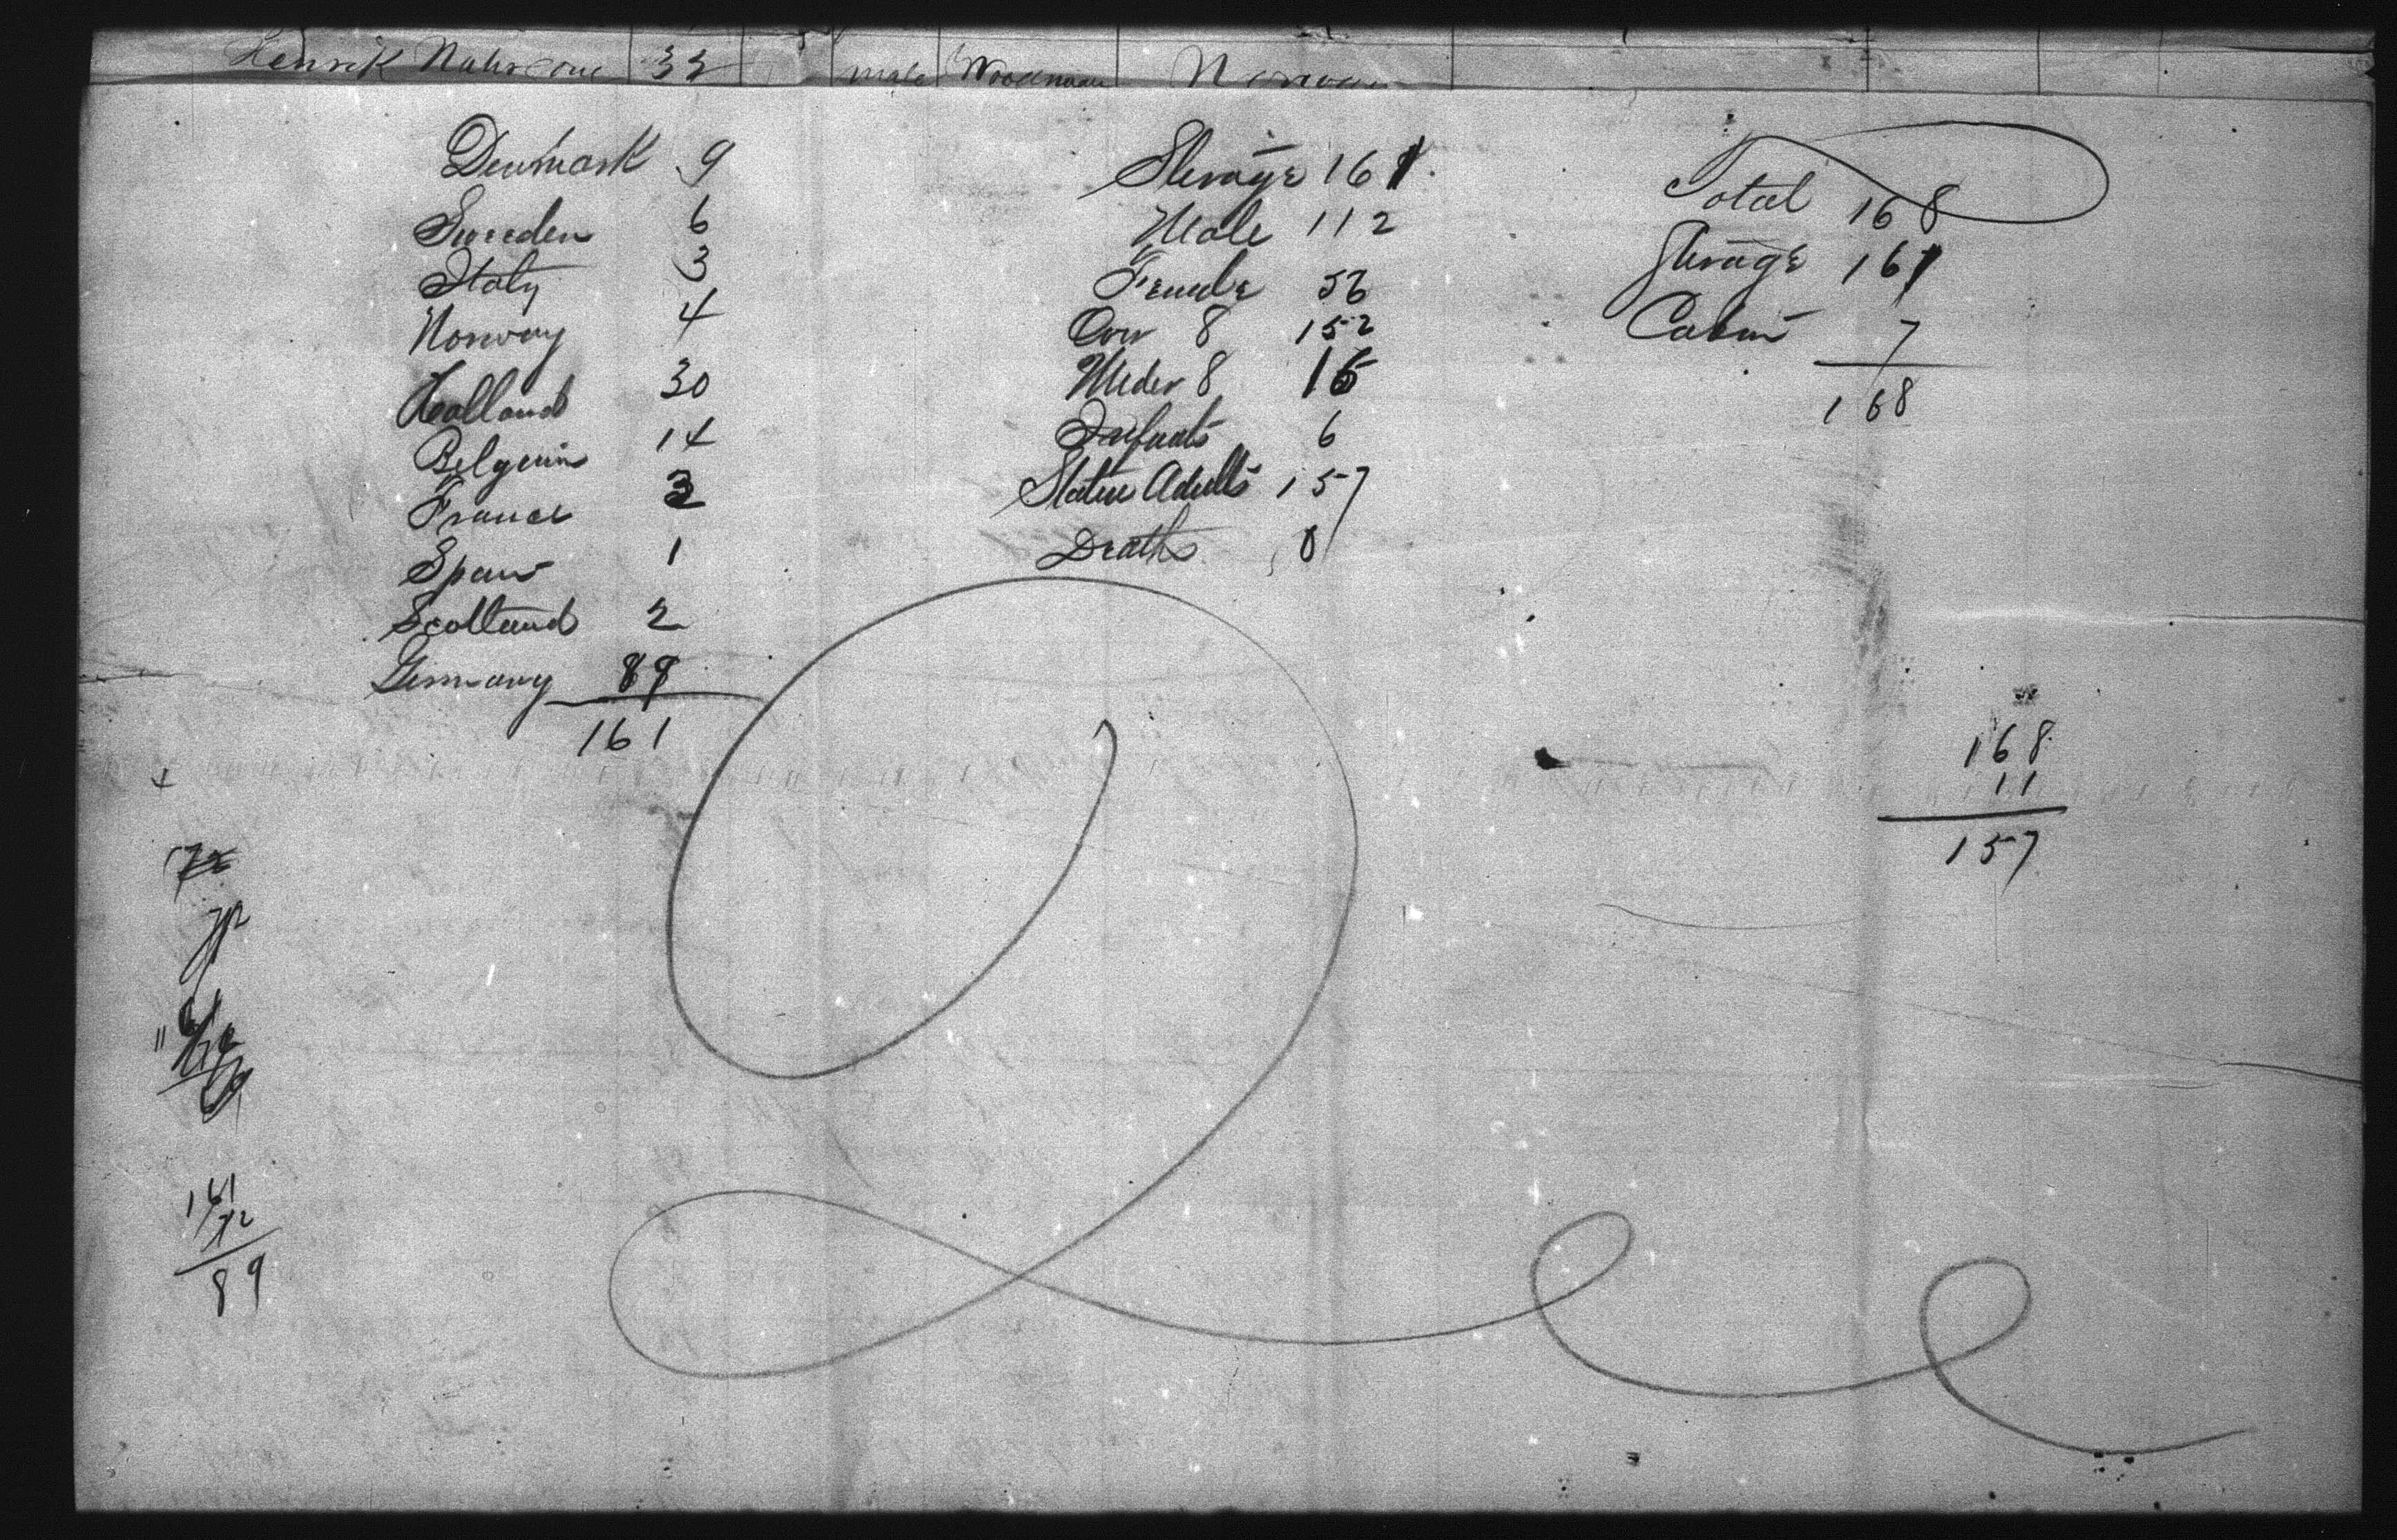 Henrik 33 male Woodman Norway
Denmark 9
Sweden 6
Italy 3
Norway 4
Holland 30
Belgium 14
France 3
Spain 1
Scotland 2
Germany 89
161
Sterage 161
Male 112
Female 56
Over 8 152
Under 8 16
Infants 6
Statue Adults 157
Deaths 0
Total 168
Sterage 161
Cabin 7
168
168
11
157
161
72
89